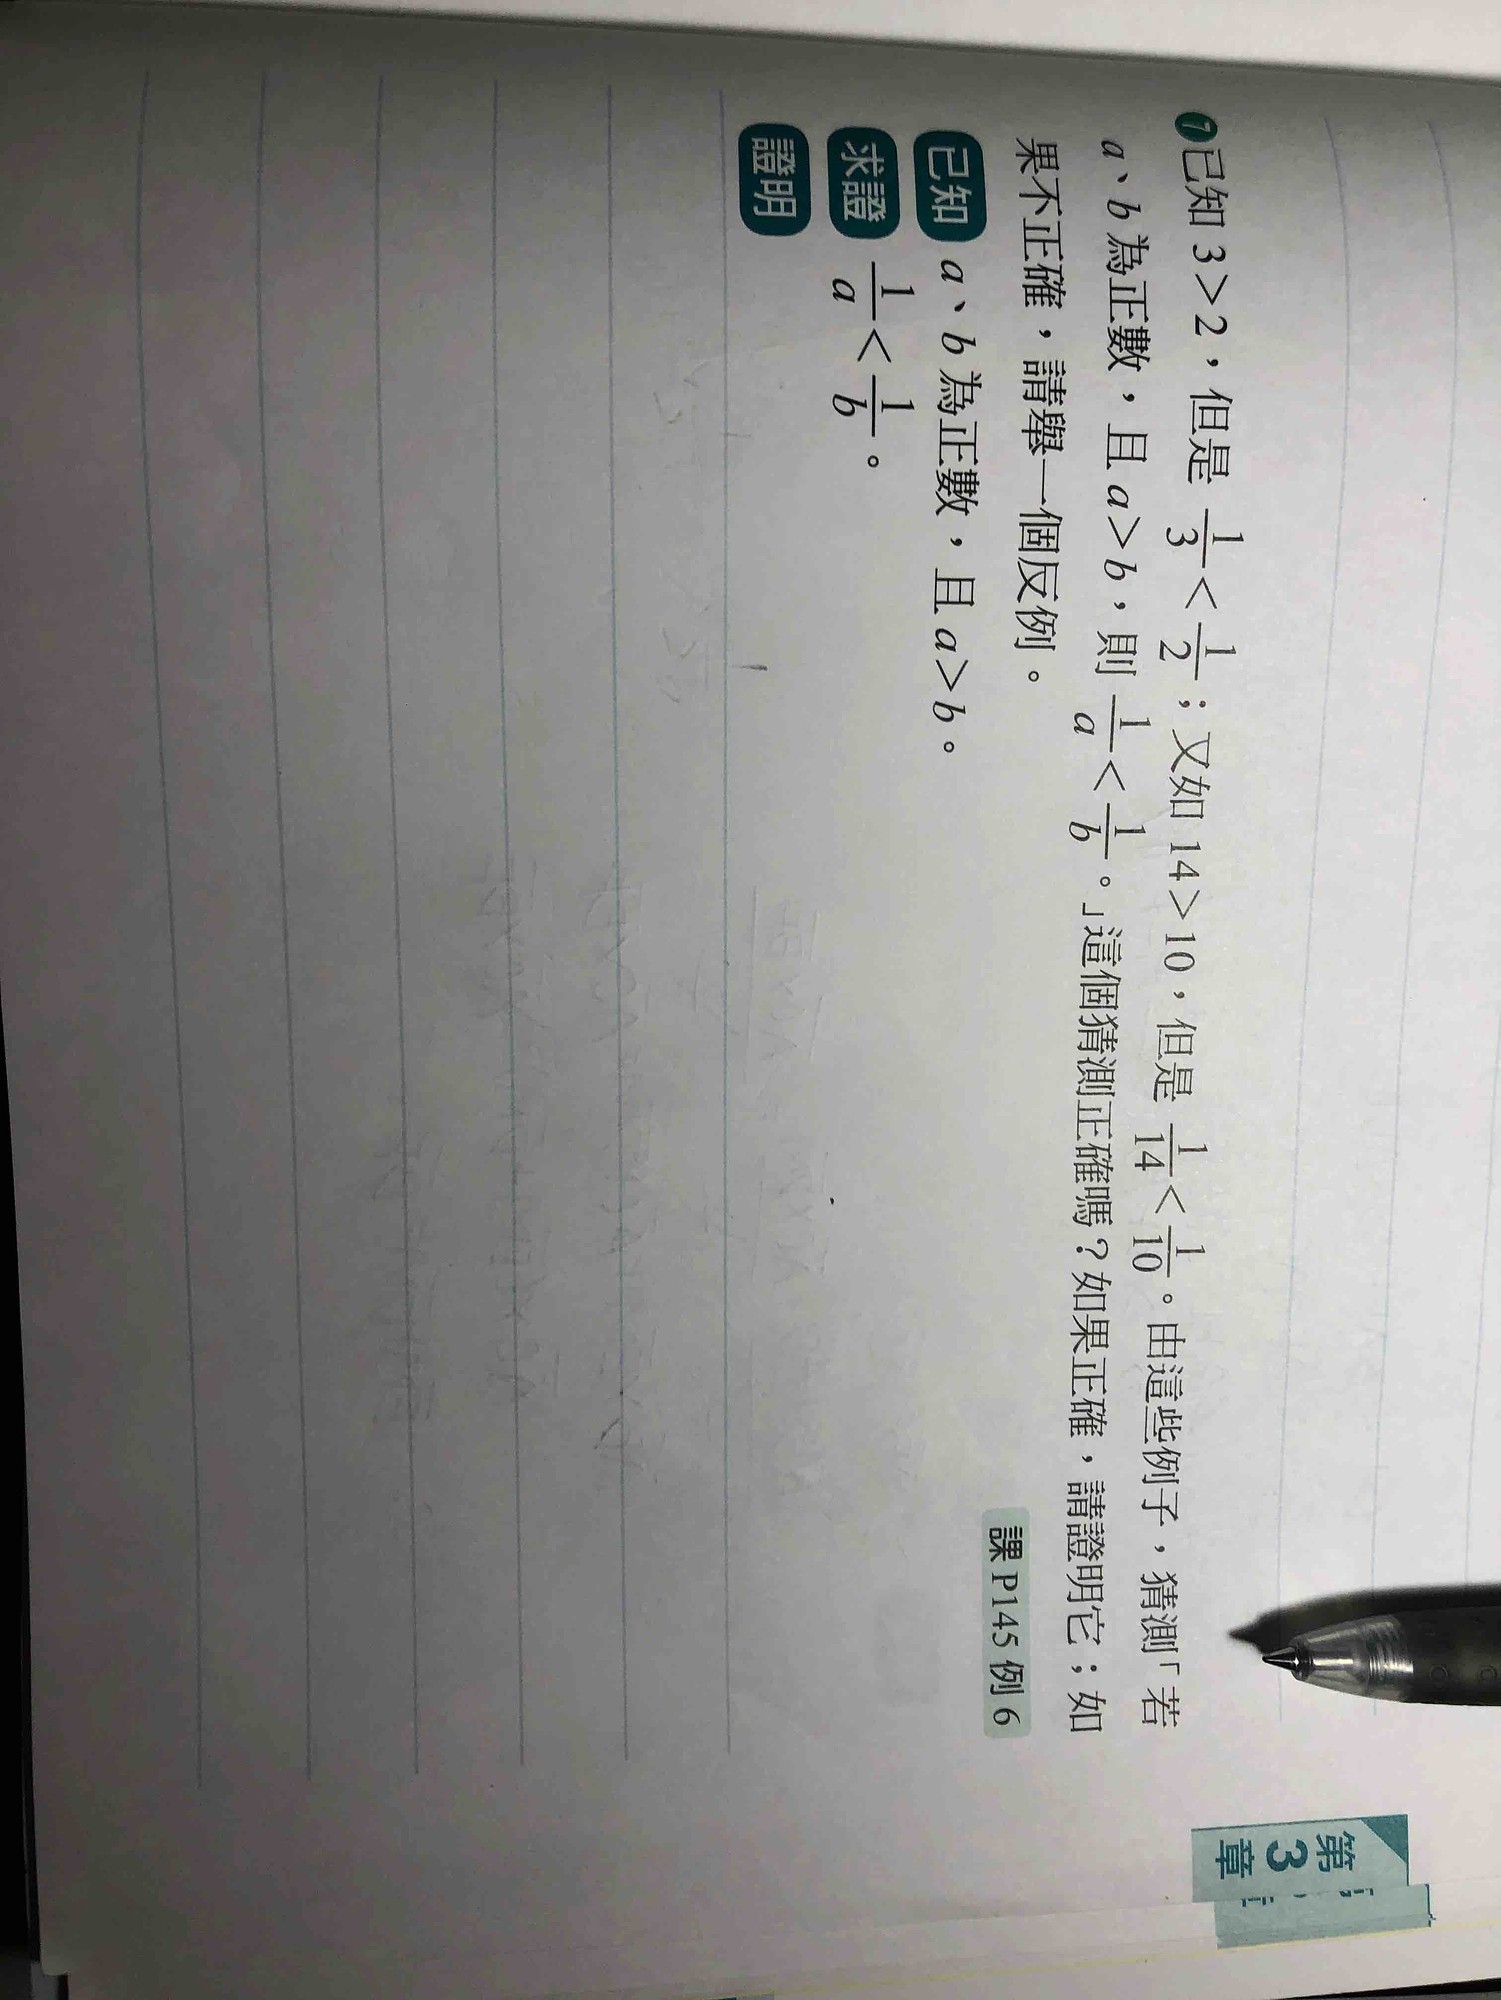 7 已知 3>2，但是 1/3<1/2；又如 14>10，但是 1/14<1/10。由這些例子，猜測「若
a、b 為正數，且 a>b，則 1/a<1/b。」這個猜測正確嗎？如果正確，請證明它；如
果不正確，請舉一個反例。
課 P145 例 6
已知 a、b 為正數，且 a>b。
求證 1/a<1/b。
證明
第3章